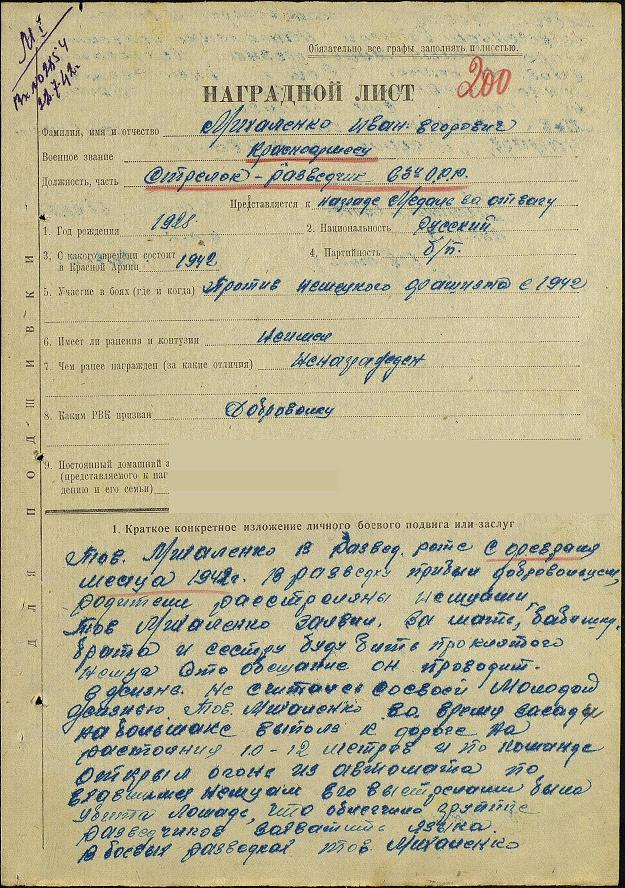 Вх №02154
22.7.42г
Обязательно все графы заполнять полностью.
200
НАГРАДНОЙ ЛИСТ
Фамилия, имя и отчество Михаленко Иван Егорович
Военное звание Красноармеец
Должность, часть Стрелок-разведчик
Представляется к награде Медаль за отвагу
1. Год рождения 1928 2. Национальность Русский
3. С какого времени состоит
в Красной Армии 1942 4. Партийность б/п.
5. Участие в боях (где и когда) Против немецкого фашизма с 1942
6. Имеет ли ранения и контузии Неимеет
7. Чем ранее награжден (за какие отличия) Ненагражден
8. Каким РВК призван Доброволец
9. Постоянный домашний
(представляемого к наг
дению и его семьи)
ДЛЯ ПОДШИВКИ
1. Краткое конкретное изложение личного боевого подвига или заслуг
Тов. Михаленко в развед. роте с февраля
месяца 1942г. В разведку прибыл добровольцем,
родители расстреляны немцами,
Тов Михаленко заявил. За мать, бабушку,
брата и сестру буду бить проклятого
немца Это обещание он проводит
в жизнь. Не считаясь со своей молодой
жизнью тов. Михаленко во время засады
на большаке выполз к дороге на
расстояния 10-12 метров и по команде
открыл огонь из автомата по
немцам его выстрелами была
убита лошадь, что обеспечило группе
разведчиков захватить языка.
В боевых разведках тов. Михаленко